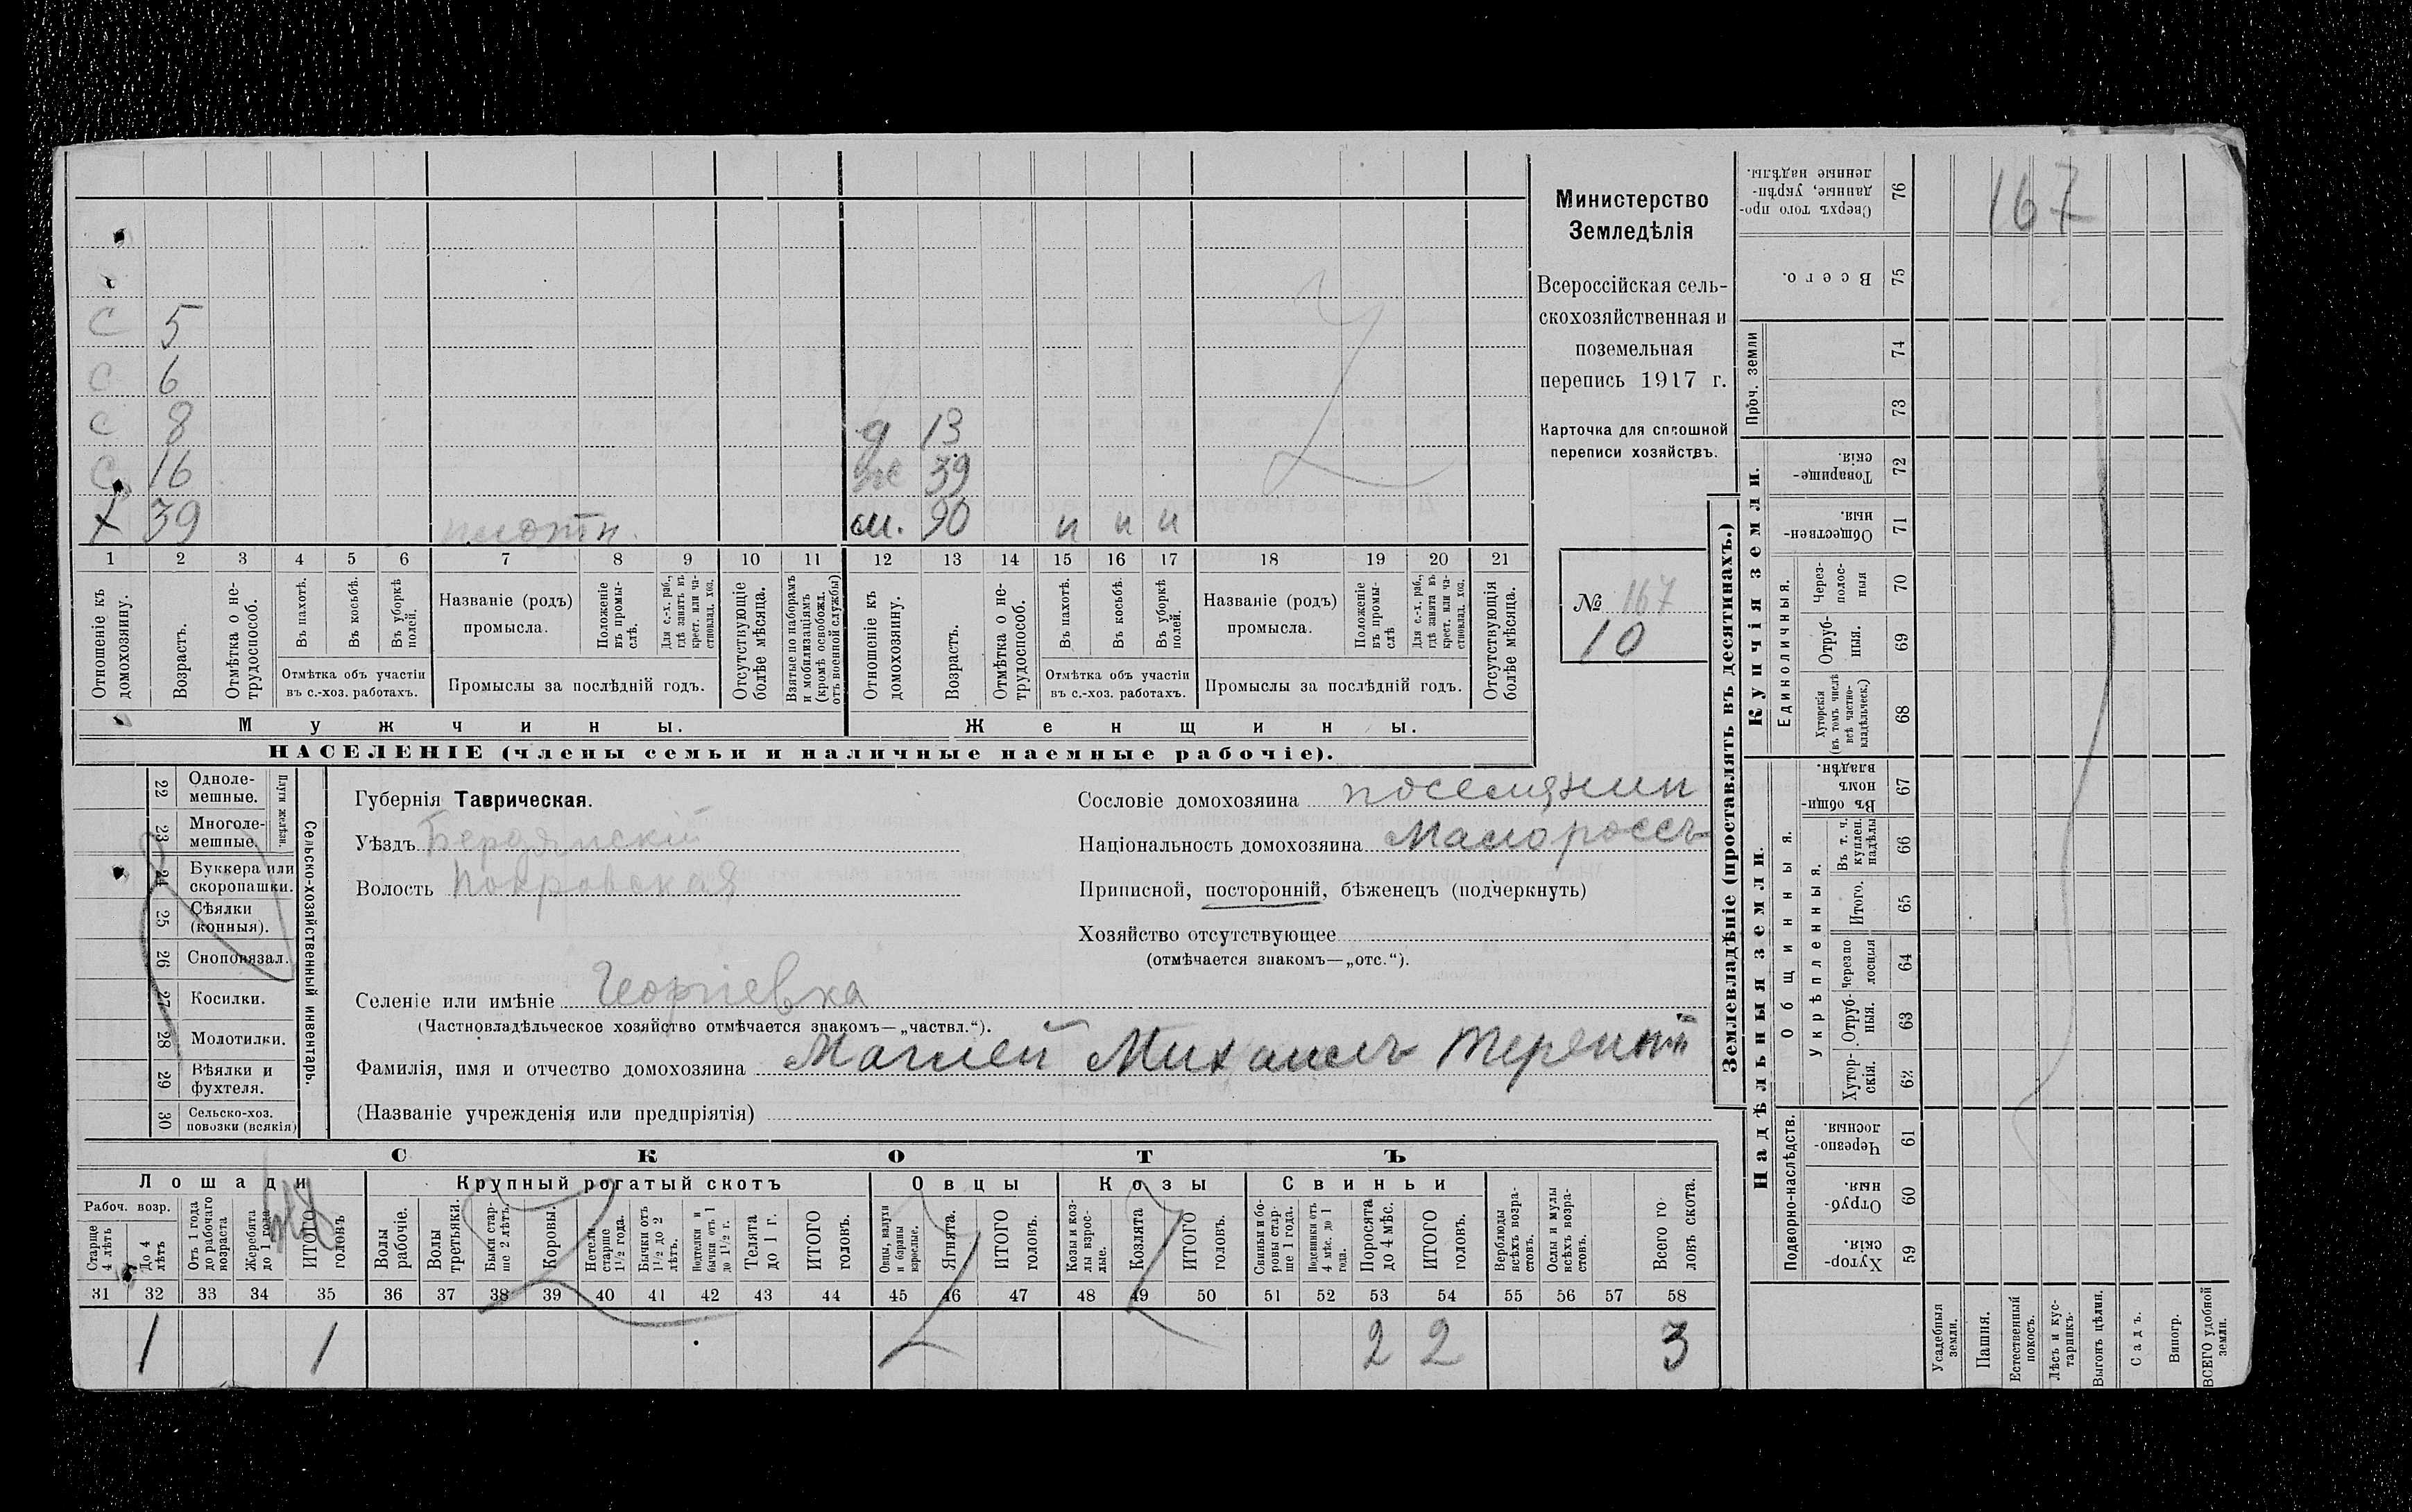 С 5
С 6
С 8 д 13
С 16 же 39
Х 39 плотн. м. 90 н н н
1 2 3 4 5 6 7 8 9 10 11 12 13 14 15 16 17 18 19 20 21
Отношеніе къ домохозяину.
Возрастъ.
Отмѣтка о не-трудоспособ.
Въ пахотѣ.
Въ косьбѣ.
Въ уборкѣ полей.
Отмѣтка объ участіи
въ с.-хоз. работахъ.
Названіе (родъ)
промысла.
Положеніе въ промы-слѣ.
Для с.-х. раб., гдѣ занятъ въ крест. или ча-стновлад. хоз.
Промыслы за послѣдній годъ.
Отсутствующіе болѣе мѣсяца.
Взятые по наборамъ и мобилизаціямъ (кромѣ освобожд. отъ военной службы)
Отношеніе къ домохозяину.
Возрастъ.
Отмѣтка о не-трудоспособ.
Въ пахотѣ.
Въ косьбѣ.
Въ уборкѣ полей.
Отмѣтка объ участіи
въ с.-хоз. работахъ.
Названіе (родъ)
промысла.
Положеніе въ промы-слѣ
Для с.-х. раб., гдѣ занята въ крест. или ча-стновлад. хоз.
Промыслы за послѣдній годъ.
Отсутствующія болѣе мѣсяца.
Мужчины. Женщины.
НАСЕЛЕНІЕ (члены семьи и наличные наемные рабочіе).
Министерство
Земледѣлія
Всероссійская сель-
скохозяйственная и
поземельная
перепись 1917 г.
Карточка для сплошной
переписи хозяйствъ.
№ 167
10
22 Одноле-мешные.
23 Многоле-мешные
Плуги желѣзн.
24 Буккера или скоропашки.
25 Сѣялки (конныя).
26 Сноповязал.
27 Косилки.
28 Молотилки.
29 Вѣялки и фухтеля.
30 Сельско-хоз. повозки (всякія)
Сельско-хозяйственный инвентарь.
Губернія Таврическая.
Уѣздъ Бердянскій
Волость Покровская
Селеніе или имѣніе Георгіевка
(Частновладѣльческое хозяйство отмѣчается знакомъ—„частвл.“).
Фамилія, имя и отчество домохозяина Михаилъ
(Названіе учрежденія или предпріятія)
Сословіе домохозяина поселянин
Національность домохозяина Малороссъ
Приписной, посторонній, бѣженецъ (подчеркнуть)
Хозяйство отсутствующее
(отмѣчается знакомъ—„отс.“).
СКОТЪ
Лошади Крупный рогатый скотъ Овцы Козы Свиньи
Рабоч. возр.
Старше 4 лѣтъ
До 4 лѣтъ
Отъ 1 года до рабочаго возраста
Жеребята до 1 года
ИТОГО головъ
Волы рабочіе.
Волы третьяки.
Быки стар-ше 2 лѣтъ.
Коровы.
Нетели старше 1½ года.
Бычки отъ 1½ до 2 лѣтъ.
Нетелки и бычки отъ 1 до 1½ г.
Телята до 1 г.
ИТОГО головъ.
Овцы, валухи и бараны взрослые.
Ягнята.
ИТОГО головъ.
Козы и коз-лы взрос-лые.
Козлята
ИТОГО головъ.
Свиньи и бо-ровы стар-ше 1 года.
Подсвинки отъ 4 мѣс. до 1 года.
Поросята до 4 мѣс.
ИТОГО головъ.
Верблюды всѣхъ возра-стовъ.
Ослы и мулы всѣхъ возра-стовъ.
Всего го-ловъ скота.
31 32 33 34 35 36 37 38 39 40 41 42 43 44 45 46 47 48 49 50 51 52 53 54 55 56 57 58
1 1 2 2 3
Землевладѣніе (проставлять въ десятинахъ.)
Купчія земли.
Надѣльныя земли.
Сверхъ того про-данные, укрѣп-ленные надѣлы. 76
167
Всего. 75
Проч. земли
74
73
Товарище-скія. 72
Обществен-ныя. 71
Единоличныя.
Через-полос-ныя 70
Отруб-ныя. 69
Хуторскія (въ томъ числѣ всѣ частно-владѣльческ.) 68
Общинныя.
Въ общи-номъ владѣн. 67
Укрѣпленныя.
Въ т. ч. куплен. надѣлы 66
Итого. 65
Черезпо-лосныя 64
Отруб-ныя. 63
Хутор-скія. 62
Подворно-наслѣдств.
Черезпо-лосныя. 61
Отруб-ныя. 60
Хутор-скія. 59
Усадебныя земли.
Пашня.
Естественный покосъ.
Лѣсъ и кус-тарникъ.
Выгонъ цѣлин.
Садъ.
Виногр.
ВСЕГО удобной земли.